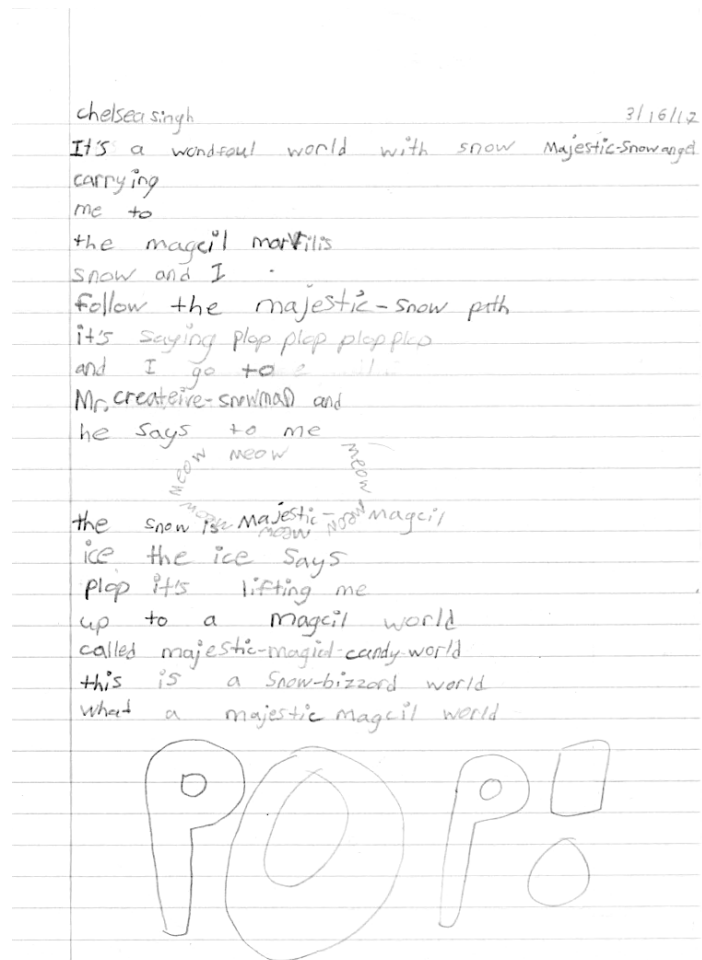 chelsea singh 3/16/12
It's a wondfoul world with snow Majestic-Snow angel
carrying
me to
the magcil marvilis
snow and I
follow the majestic-snow path
it's saying plop plop plop plop
and I go to
Mr. createive-snowman and
he says to me
meow meow meow
meow meow meow
the snow is majestic-magcil
ice the ice says
plop it's lifting me
up to a magcil world
called majestic-magicl-candy-world
this is a snow-bizzard world
what a majestic magcil world
POP!